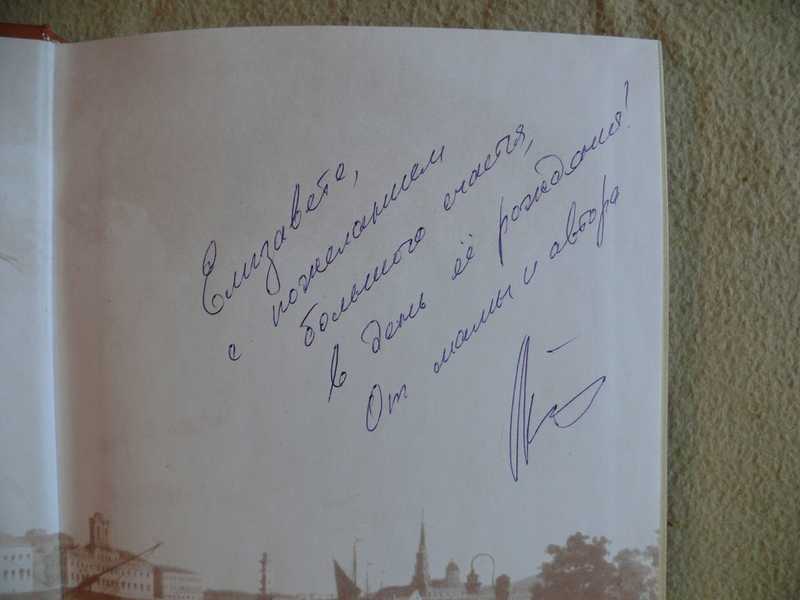 Елизавете,
с пожеланием
большого счастья,
в день её рождения!
От мамы и автора